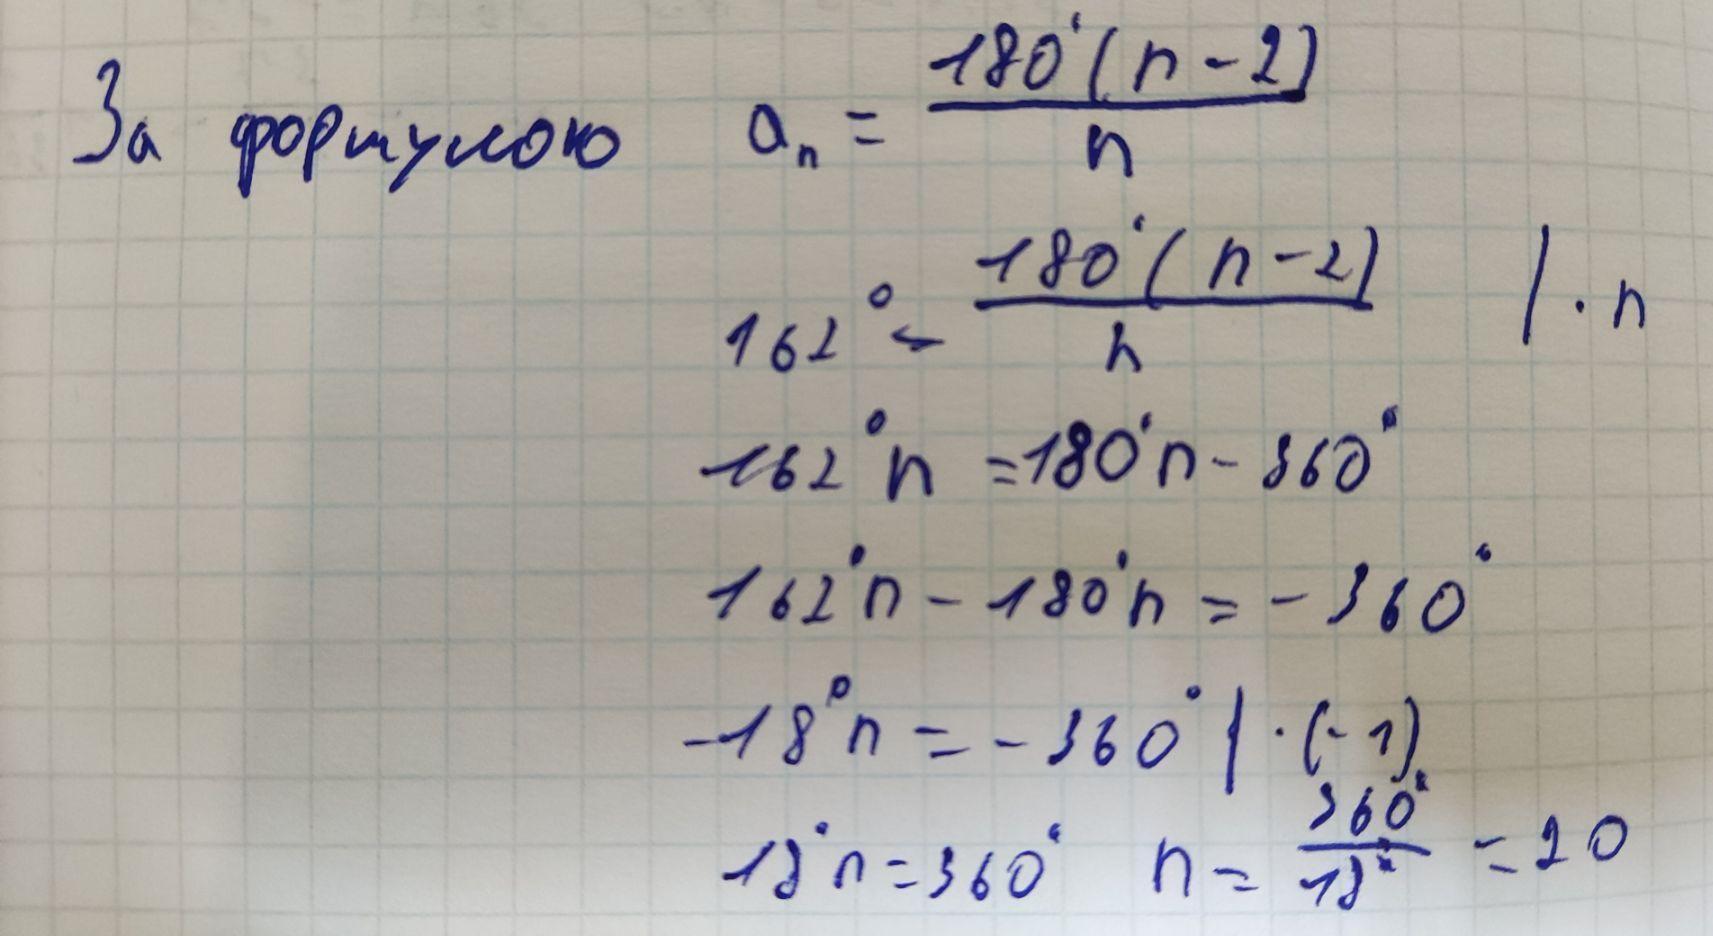 За формулою aₙ = 180°(n-2)/n
162° = 180°(n-2)/n | · n
162°n = 180°n - 360°
162°n - 180°n = - 360°
-18°n = - 360° | · (-1)
18°n = 360° n = 360°/18° = 20